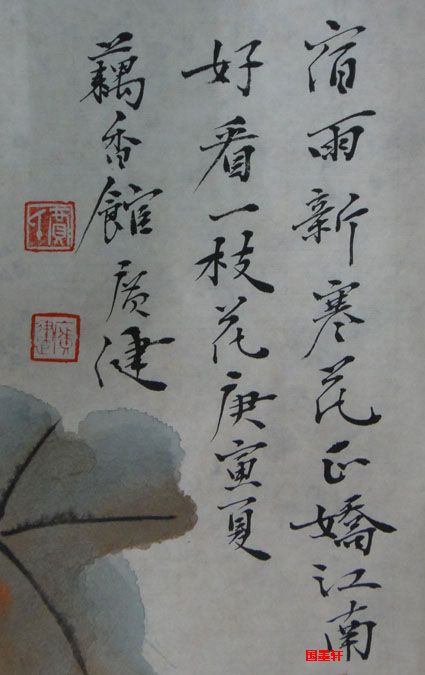 宿雨新寒花正嬌江南
好看一枝花庚寅夏
藕香館廣健
国墨轩